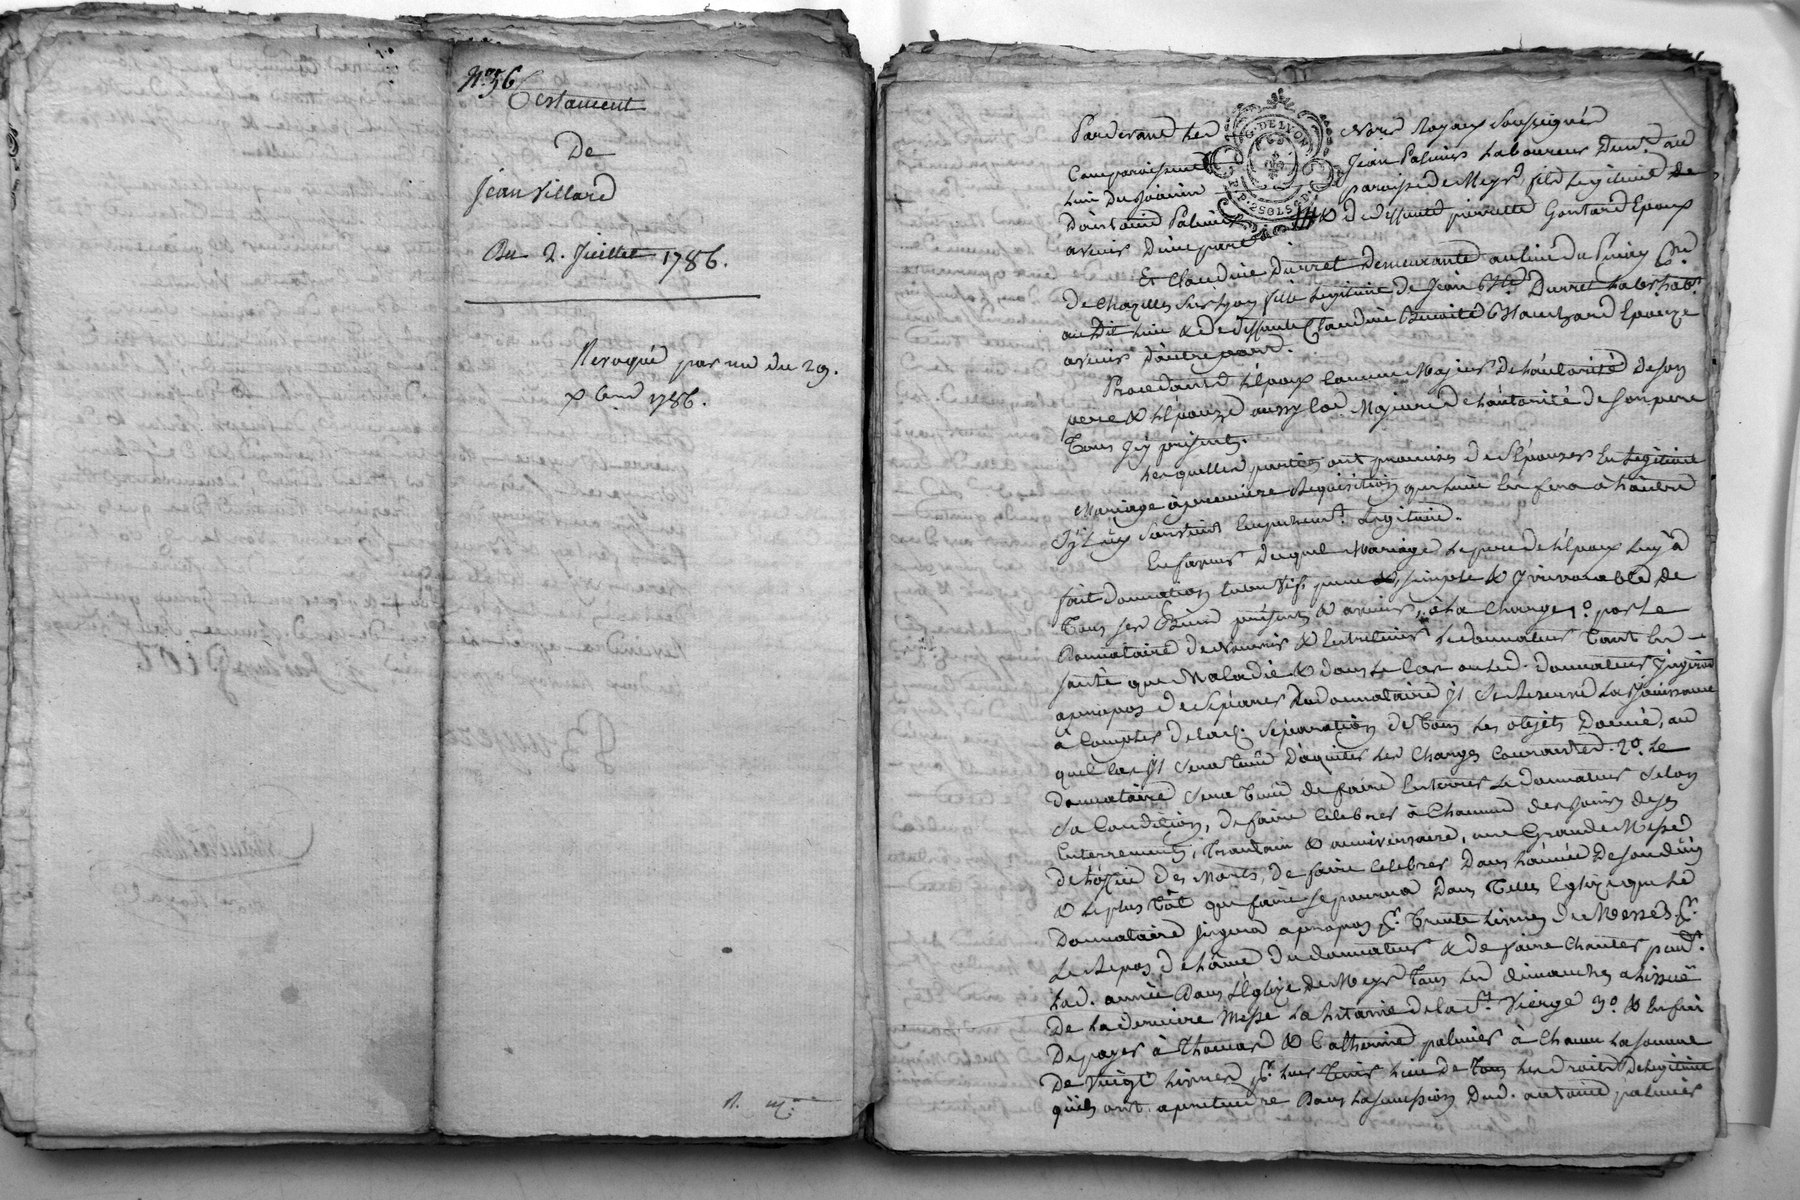 N.º 56
Testament
De
Jean Villard
Du 2. Juillet 1786.
Revoqué par un du 29.
Xbre 1786.
R. m.e
G. DE LYON
Pardevant les Nores Royaux Soussignés
Comparoissent Jean Palmier Laboureur Demt. au
Lieu Du paroisse de Meys, fils Legitime de
D'antoine Palmier & de deffunte pierrette Gontard Epoux
avenir D'une part
Et Claudine Durret Demeurante au lieu du Puiay psse
De Chazelles sur Lyon fille Legitime de Jean Bte Durret Labr. habt.
au Dit lieu & de deffunte Claudine Benoite Epouze
avenir D'autre part.
Procedants L'Epoux comme Majeur De L'autorité De son
pere & L'Epouze aussy come Majeure de L'autorité de son pere
Tous Icy présents.
Lesquelles parties ont promises de S'Epouser En Legitime
Mariage à premiere Requisition que L'une En fera à L'autre
S'il n'y Survient Empechemt. Legitime.
En faveur Duquel Mariage Le pere de L'Epoux Luy à
fait Donnation Entre Vifs pure & simple & Irrevocable De
Tous ses Biens présents & avenir, à La Charge 1º. par Le
Donnataire de Nourrir & Entretenir Le donnateur Tant En
santé que Maladie & dans Le Cas ou Led. Donnateur Jugeroit
apropos de Séparer du donnataire Il Se Reserve La Jouissance
à Compter de lad. Séparation De Tous Les objets Donnés, au
quel Cas Il Sera Tenu D'aquiter Les Charges Courantes. 2º. Le
Donnataire Sera Tenu de faire Enterrer Le donnateur Selon
Sa Condition, De faire Celebrer à Chacun des Jours de Ses
Enterrements, Trantain & anniversaire, une Grande Messe
de L'office Des Morts, De faire Celebrer Dans L'année De Son décès
& Le plus Tôt que faire Se pourra Dans Telles Eglize que Le
Donnataire Jugera apropos pr. Trente Livres De Messes pr.
Le Repos de L'ame du donnateur & de faire Chanter pendt.
Lad. année Dans L'Eglize de Meys Tous Les Dimanches a L'issuë
De La derniere Messe La Litanie de la Ste. Vierge 3º. & En fin
De payer à Thomas & Catherine palmier à Chacun La Somme
De Vingt Livres pr. Leur Tenir Lieu De Tous Les droits De Legitime
qu'ils ont apretendre Dans La Succession Dud. antoine palmier